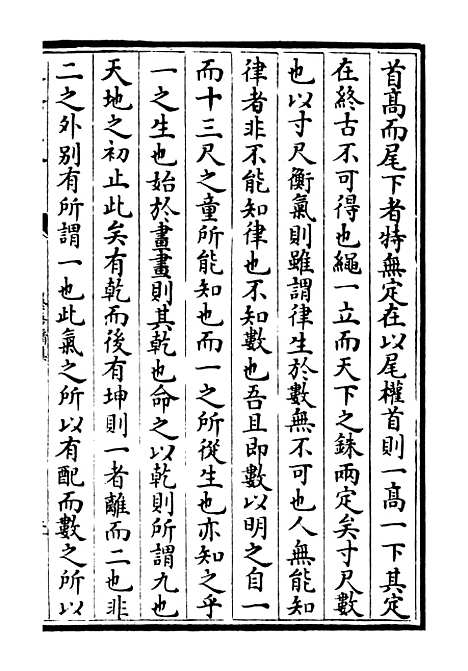 首髙而尾下者特無定在以尾權首則一髙一下其定
在終古不可得也繩一立而天下之銖兩定矣寸尺數
也以寸尺衡氣則雖謂律生於數無不可也人無能知
律者非不能知律也不知數也吾且即數以明之自一
而十三尺之童所能知也而一之所從生也亦知之乎
一之生也始於畫畫則其乾也命之以乾則所謂九也
天地之初止此矣有乾而後有坤則一者離而二也非
二之外别有所謂一也此氣之所以有配而數之所以